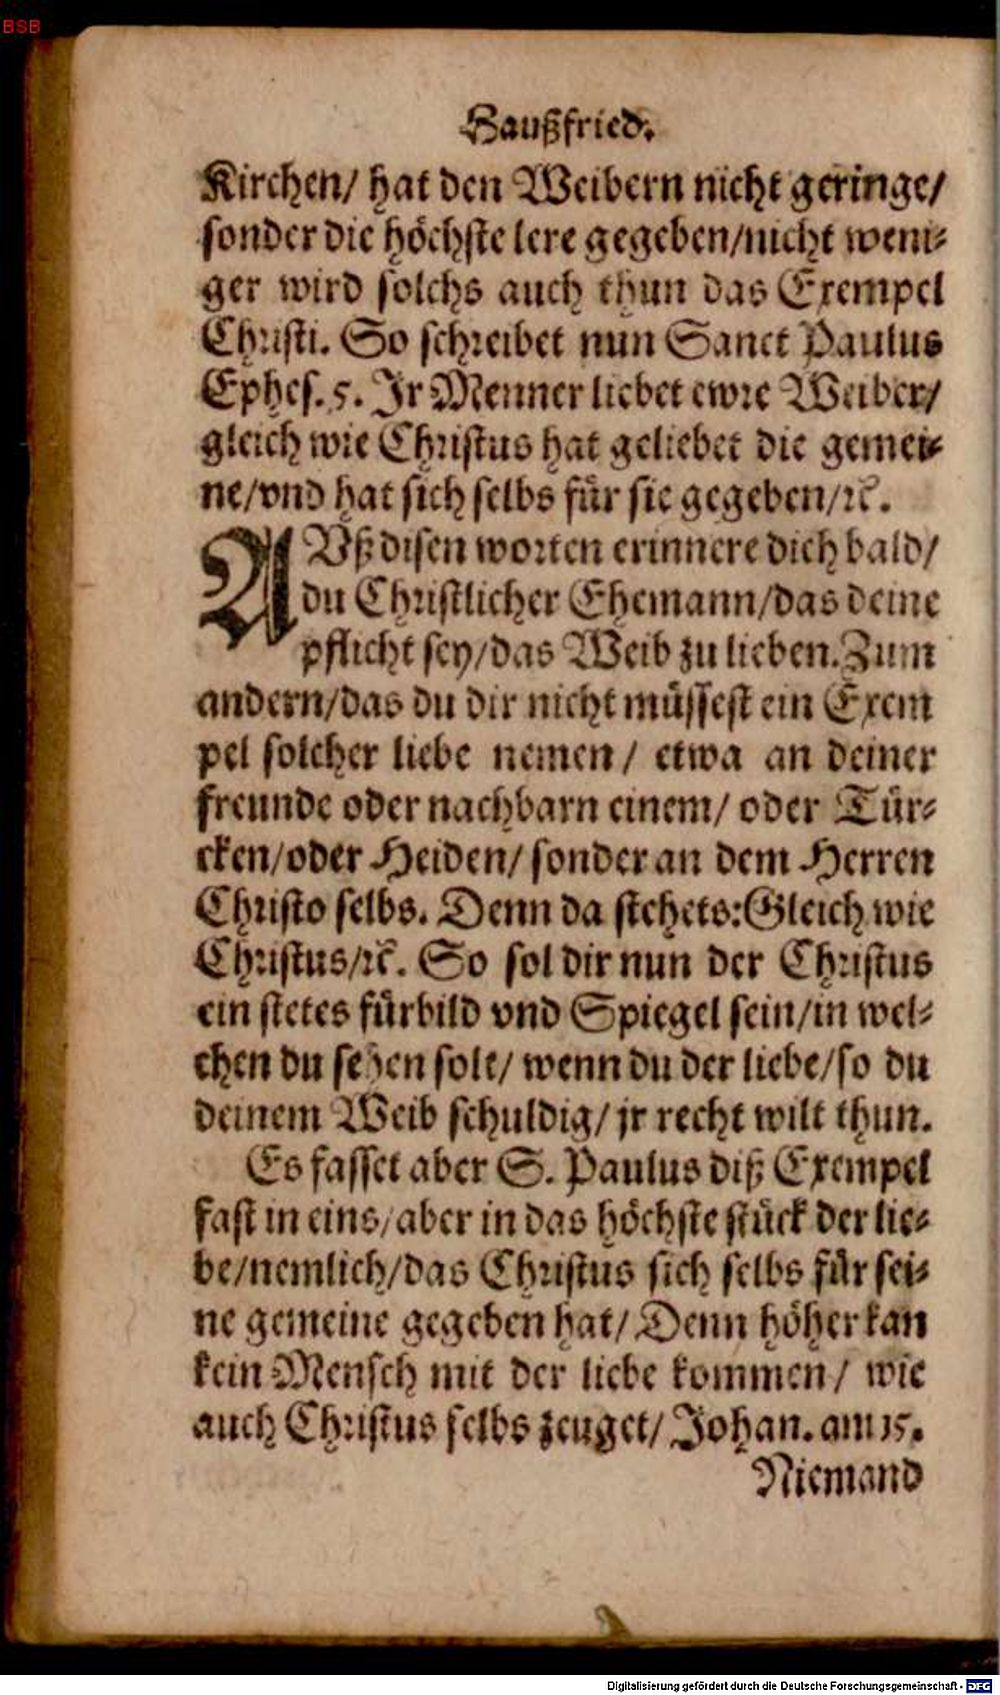 BSB
Haußfried.
Kirchen/ hat den Weibern nicht geringe/
sonder die höchste lere gegeben/nicht weni⸗
ger wird solchs auch thun das Exempel
Christi. So schreibet nun Sanct Paulus
Ephes. 5. Jr Menner liebet ewre Weiber/
gleich wie Christus hat geliebet die gemei⸗
ne/vnd hat sich selbs für sie gegeben/ꝛc.
AVß disen worten erinnere dich bald/
du Christlicher Ehemann/das deine
pflicht sey/das Weib zu lieben. Zum
andern/das du dir nicht müssest ein Exem
pel solcher liebe nemen/ etwa an deiner
freunde oder nachbarn einem/ oder Tür⸗
cken/oder Heiden/ sonder an dem Herren
Christo selbs. Denn da stehets: Gleich wie
Christus/ꝛc. So sol dir nun der Christus
ein stetes fürbild vnd Spiegel sein/in wel⸗
chen du sehen solt/ wenn du der liebe/so du
deinem Weib schuldig/ jr recht wilt thun.
Es fasset aber S. Paulus diß Exempel
fast in eins/aber in das höchste stück der lie⸗
be/nemlich/das Christus sich selbs für sei⸗
ne gemeine gegeben hat/ Denn höher kan
kein Mensch mit der liebe kommen/ wie
auch Christus selbs zeuget/ Johan. am 15.
Niemand
Digitalisierung gefördert durch die Deutsche Forschungsgemeinschaft - DFG